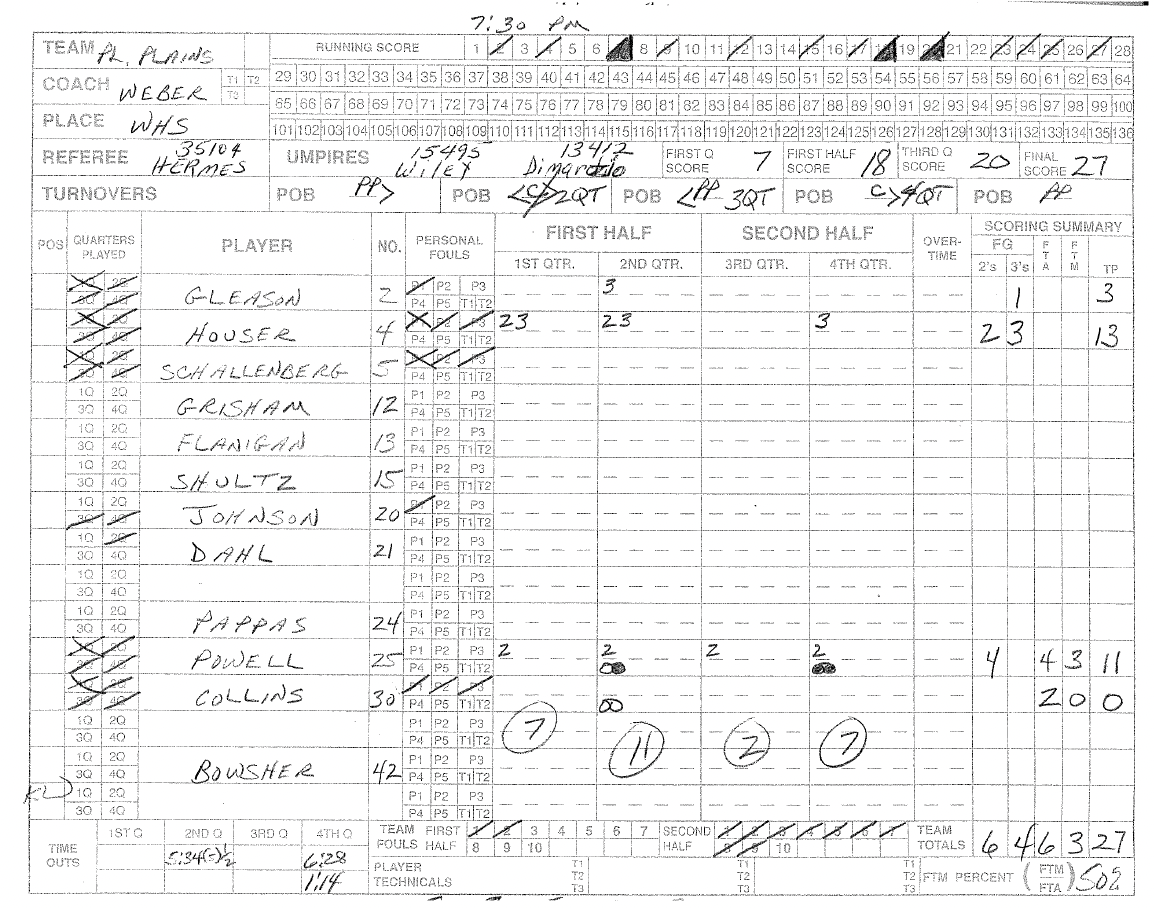 7:30 PM
TEAM PL. PLAINS RUNNING SCORE 1 2 3 4 5 6 7 8 9 10 11 12 13 14 15 16 17 18 19 20 21 22 23 24 25 26 27 28
COACH WEBER T1 T2 T3 29 30 31 32 33 34 35 36 37 38 39 40 41 42 43 44 45 46 47 48 49 50 51 52 53 54 55 56 57 58 59 60 61 62 63 64
65 66 67 68 69 70 71 72 73 74 75 76 77 78 79 80 81 82 83 84 85 86 87 88 89 90 91 92 93 94 95 96 97 98 99 100
PLACE WHS 101 102 103 104 105 106 107 108 109 110 111 112 113 114 115 116 117 118 119 120 121 122 123 124 125 126 127 128 129 130 131 132 133 134 135 136
REFEREE 35104 HERMES UMPIRES 15495 Wiley 13412 FIRST Q SCORE 7 FIRST HALF SCORE 18 THIRD Q SCORE 20 FINAL SCORE 27
TURNOVERS POB PP> POB <C> 2QT POB <PP 3QT POB C> 4QT POB PP
POS QUARTERS PLAYED PLAYER NO. PERSONAL FOULS FIRST HALF SECOND HALF OVER-TIME SCORING SUMMARY
1ST QTR. 2ND QTR. 3RD QTR. 4TH QTR. FG 2's 3's FTA FTM TP
1Q 2Q 3Q 4Q GLEASON 2 P1 P2 P3 P4 P5 T1 T2 3 1 3
1Q 2Q 3Q 4Q HOUSER 4 P1 P2 P3 P4 P5 T1 T2 23 23 3 2 3 13
1Q 2Q 3Q 4Q SCHALLENBERG 5 P1 P2 P3 P4 P5 T1 T2
1Q 2Q 3Q 4Q GRISHAM 12 P1 P2 P3 P4 P5 T1 T2
1Q 2Q 3Q 4Q FLANIGAN 13 P1 P2 P3 P4 P5 T1 T2
1Q 2Q 3Q 4Q SHULTZ 15 P1 P2 P3 P4 P5 T1 T2
1Q 2Q 3Q 4Q JOHNSON 20 P1 P2 P3 P4 P5 T1 T2
1Q 2Q 3Q 4Q DAHL 21 P1 P2 P3 P4 P5 T1 T2
1Q 2Q 3Q 4Q P1 P2 P3 P4 P5 T1 T2
1Q 2Q 3Q 4Q PAPPAS 24 P1 P2 P3 P4 P5 T1 T2
1Q 2Q 3Q 4Q POWELL 25 P1 P2 P3 P4 P5 T1 T2 2 2 2 2 4 4 3 11
1Q 2Q 3Q 4Q COLLINS 30 P1 P2 P3 P4 P5 T1 T2 00 2 0 0
1Q 2Q 3Q 4Q P1 P2 P3 P4 P5 T1 T2 7 11 2 7
1Q 2Q 3Q 4Q BOWSHER 42 P1 P2 P3 P4 P5 T1 T2
1Q 2Q 3Q 4Q P1 P2 P3 P4 P5 T1 T2
TIME OUTS 1ST Q 2ND Q 3RD Q 4TH Q TEAM FOULS FIRST HALF 1 2 3 4 5 6 7 8 9 10 SECOND HALF 1 2 3 4 5 6 7 8 9 10 TEAM TOTALS 6 4 6 3 27
6:28
1:14 PLAYER TECHNICALS T1 T2 T3 T1 T2 T3 T1 T2 T3 FTM PERCENT (FTM/FTA) 50%